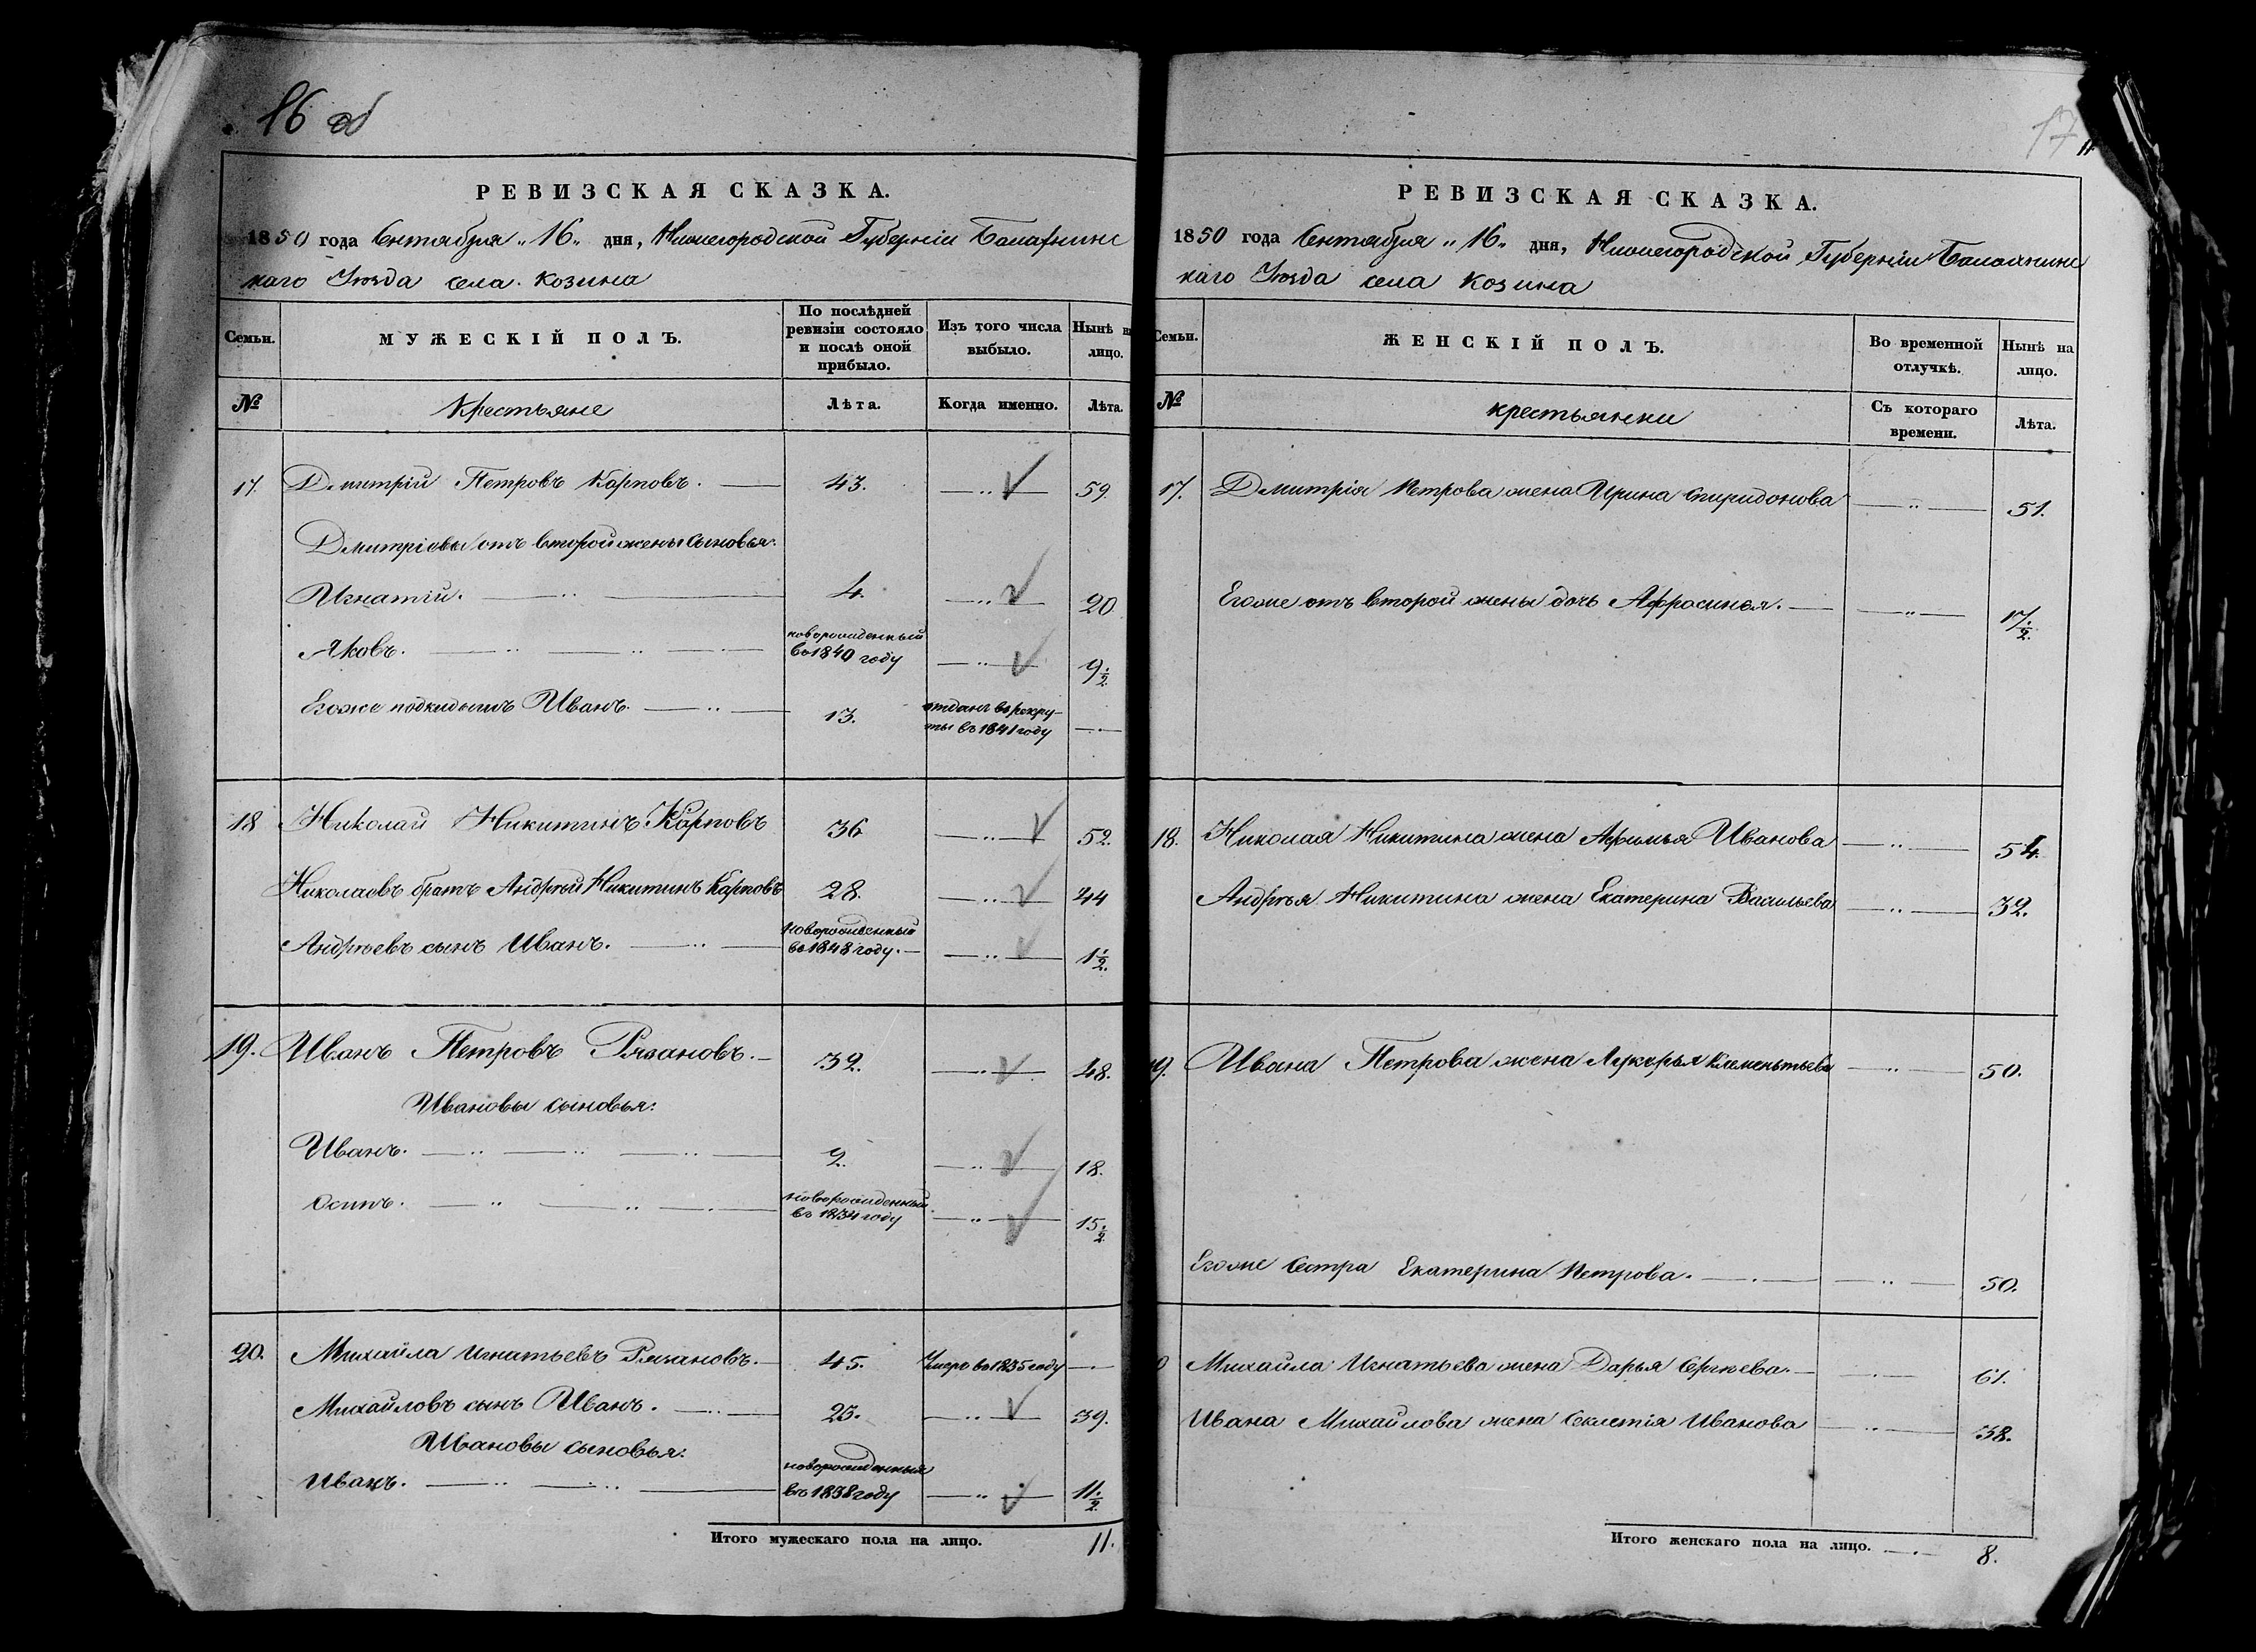 16 об
РЕВИЗСКАЯ СКАЗКА.
1850 года Сентября „16„ дня, Нижегородской Губерніи Балахнинс
каго Уѣзда села Козина
Семьи.
МУЖЕСКІЙ ПОЛЪ.
По послѣдней ревизіи состояло и послѣ оной прибыло.
Изъ того числа выбыло.
Нынѣ на лицо.
№
Крестьяне
Лѣта.
Когда именно.
Лѣта.
17. Дмитрій Петровъ Карповъ. 43. 59.
Дмитріевы отъ второй жены сыновья:
Игнатій. 4. 20
Яковъ. новорожденный въ 1840 году 9 1/2.
Егоже подкидышъ Иванъ. 13. отданъ въ рекру-
ты въ 1841 году
18 Николай Никитинъ Карповъ 36 52.
Николаевъ братъ Андрѣй Никитинъ Карповъ 28. 44
Андрѣевъ сынъ Иванъ. новорожденный въ 1848 году. 1 1/2.
19. Иванъ Петровъ Рязановъ. 32. 48.
Ивановы сыновья:
Иванъ. 2. 18.
Осипъ. новорожденный въ 1834 году 15 1/2.
20. Михайла Игнатьевъ Рязановъ. 45. Умеръ въ 1835 году
Михайловъ сынъ Иванъ. 23. 39.
Ивановы сыновья:
Иванъ. новорожденный въ 1838 году 11 1/2.
Итого мужескаго пола на лицо. 11.
17
РЕВИЗСКАЯ СКАЗКА.
1850 года Сентября „16„ дня, Нижегородской Губерніи Балахнинс
каго Уѣзда села Козина
Семьи.
ЖЕНСКІЙ ПОЛЪ.
Во временной отлучкѣ.
Нынѣ на лицо.
№
крестьянки
Съ котораго времени.
Лѣта.
17. Дмитрія Петрова жена Ирина Спиридонова 51.
Егоже отъ второй жены дочь Афросинья. 17 1/2.
18. Николая Никитина жена Афимья Иванова 54.
Андрѣя Никитина жена Екатерина Васильева 32.
9. Ивана Петрова жена Лукерья Клементьева 50.
Егоже Сестра Екатерина Петрова. 50.
0 Михайла Игнатьева жена Дарья Сергѣева. 61.
Ивана Михайлова жена Секлетія Иванова 38.
Итого женскаго пола на лицо. 8.